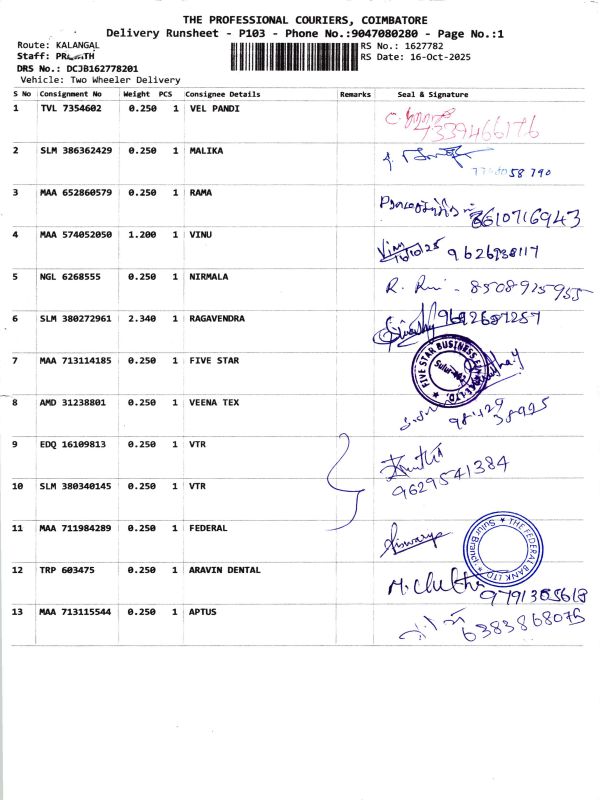 THE PROFESSIONAL COURIERS, COIMBATORE
Delivery Runsheet - P103 - Phone No.:9047080280 - Page No.:1
Route: KALANGAL
RS No.: 1627782
Staff:
RS Date: 16-Oct-2025
DRS No.: DCJB162778201
Vehicle: Two Wheeler Delivery
S No Consignment No Weight PCS Consignee Details Remarks Seal & Signature
1 TVL 7354602 0.250 1 VEL PANDI
7339466176
2 SLM 386362429 0.250 1 MALIKA
58 790
3 MAA 652860579 0.250 1 RAMA
8610716943
4 MAA 574052050 1.200 1 VINU
5 NGL 6268555 0.250 1 NIRMALA
R. - 8508925955
6 SLM 380272961 2.340 1 RAGAVENDRA
7 MAA 713114185 0.250 1 FIVE STAR
FIVE STAR BUSINESS
8 AMD 31238801 0.250 1 VEENA TEX
9 EDQ 16109813 0.250 1 VTR
9629541384
10 SLM 380340145 0.250 1 VTR
11 MAA 711984289 0.250 1 FEDERAL
THE FEDERAL BANK LTD. Sulur Branch
12 TRP 603475 0.250 1 ARAVIN DENTAL
13 MAA 713115544 0.250 1 APTUS
6383868075